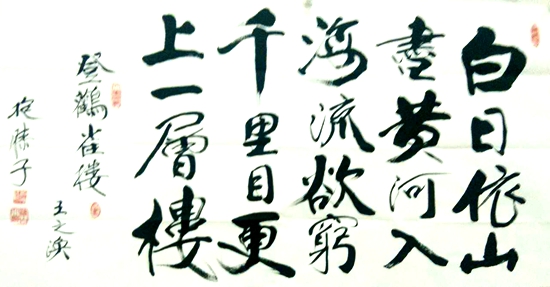 白日依山
盡黄河入
海流欲窮
千里目更
上一層樓
登鸛雀楼
王之渙
抱膝子